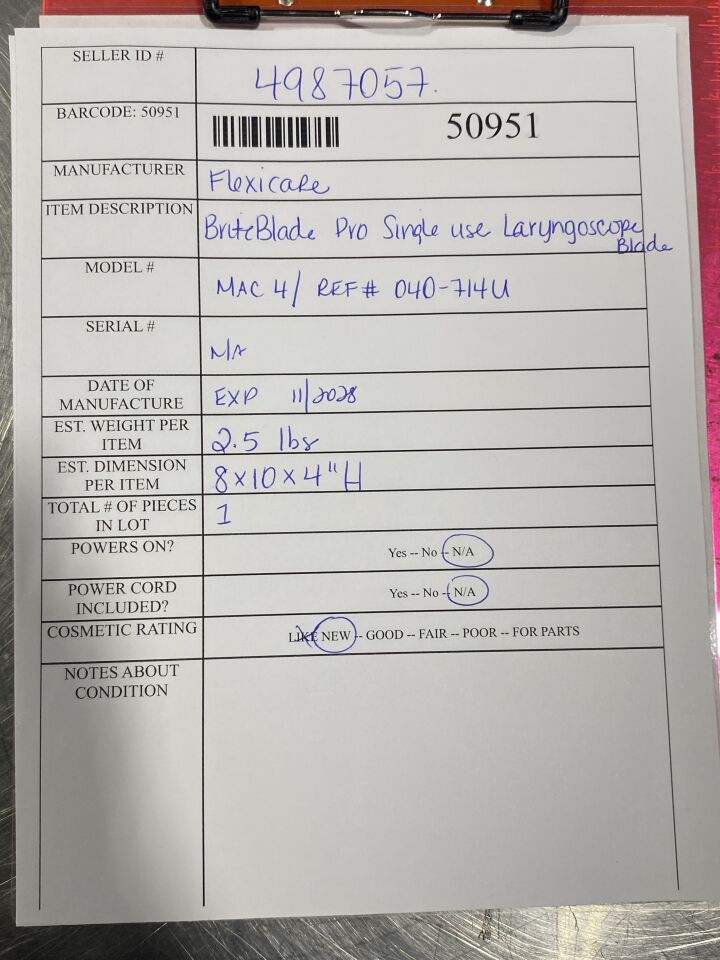 SELLER ID #
4987057.
BARCODE: 50951
50951
MANUFACTURER
Flexicare
ITEM DESCRIPTION
BriteBlade Pro Single use Laryngoscope
Blade
MODEL #
MAC 4/ REF# 040-714U
SERIAL #
N/A
DATE OF
MANUFACTURE
EXP 11/2028
EST. WEIGHT PER
ITEM
2.5 lbs
EST. DIMENSION
PER ITEM
8x10x4"H
TOTAL # OF PIECES
IN LOT
1
POWERS ON?
Yes -- No -- N/A
POWER CORD
INCLUDED?
Yes -- No -- N/A
COSMETIC RATING
LIKE NEW -- GOOD -- FAIR -- POOR -- FOR PARTS
NOTES ABOUT
CONDITION